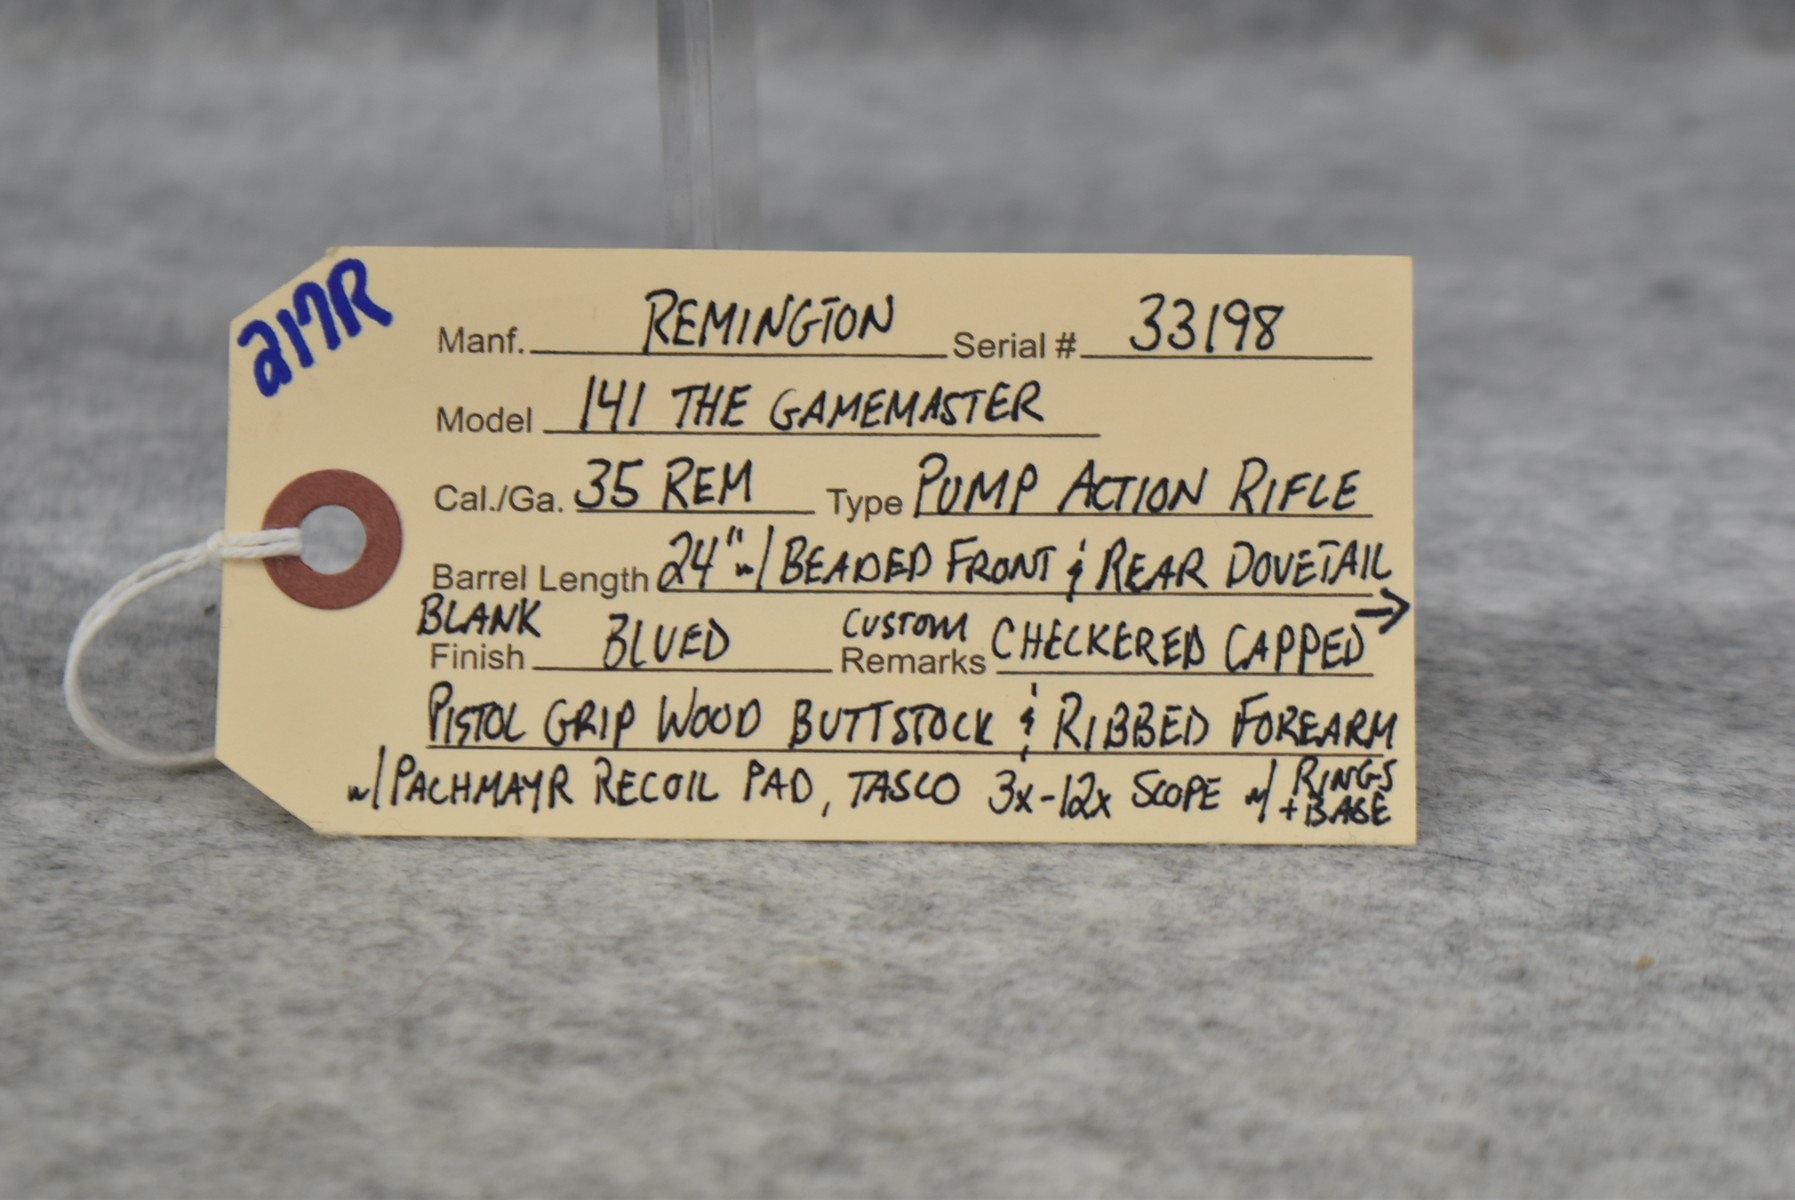 217R
Manf. REMINGTON Serial # 33198
Model 141 THE GAMEMASTER
Cal./Ga. 35 REM Type PUMP ACTION RIFLE
Barrel Length 24" w/ BEADED FRONT & REAR DOVETAIL
BLANK
Finish BLUED CUSTOM Remarks CHECKERED CAPPED →
PISTOL GRIP WOOD BUTTSTOCK & RIBBED FOREARM
w/ PACHMAYR RECOIL PAD, TASCO 3x-12x SCOPE w/ RINGS
+ BASE